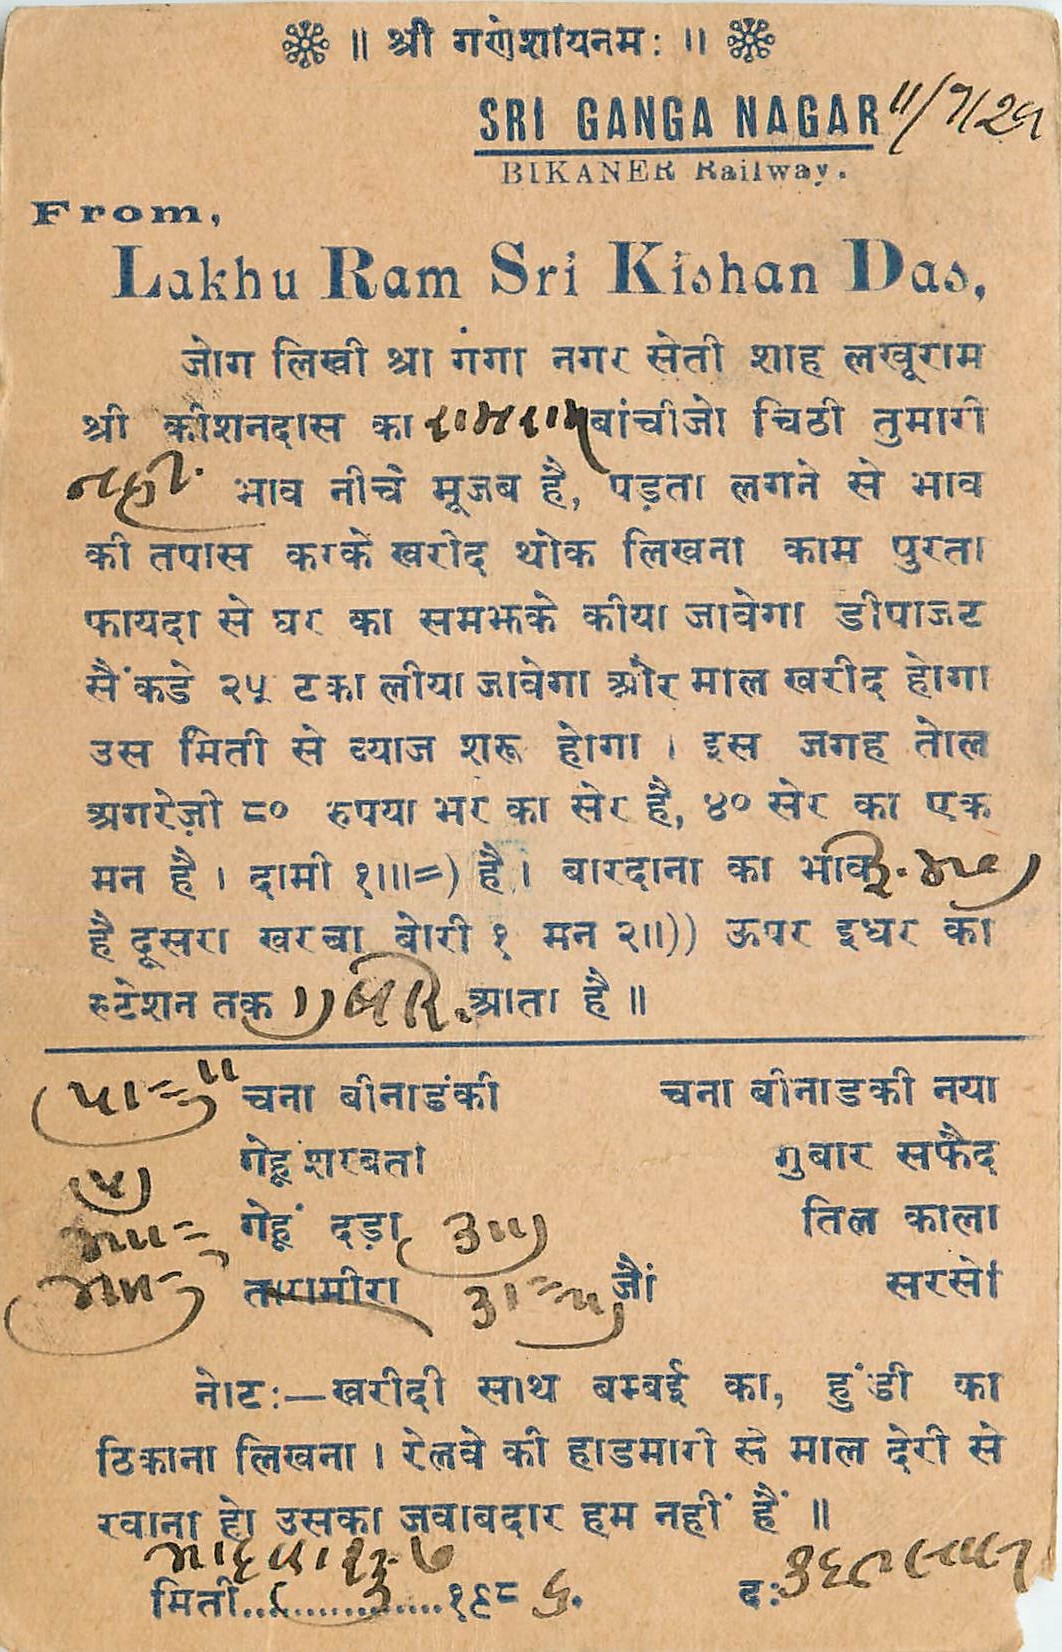 ॥ श्री गणेशायनमः ॥
SRI GANGA NAGAR 11/7/29
BIKANER Railway.
From,
Lakhu Ram Sri Kishan Das,
जोग लिखी श्री गंगा नगर सेती शाह लखूराम
श्री कीशनदास का रामराम बांचीजो चिठी तुमारी
नही भाव नीचे मूजब है, पड़ता लगने से भाव
की तपास करके खरीद थोक लिखना काम पुरता
फायदा से घर का समझके कीया जावेगा डीपाजट
सैंकडे २५ टका लीया जावेगा और माल खरीद होगा
उस मिती से व्याज शरू होगा । इस जगह तोल
अगरेज़ी ८० रुपया भर का सेर है, ४० सेर का एक
मन है । दामी १॥।=) है । बारदाना का भाव
है दूसरा खरचा बोरी १ मन २॥)) ऊपर इधर का
स्टेशन तक आता है ॥
चना बीनाडंकी चना बीनाडकी नया
गेहूं शरबती गुबार सफैद
गेहूं दड़ा तिल काला
तारामीरा जौं सरसों
नोट:—खरीदी साथ बम्बई का, हुंडी का
ठिकाना लिखना । रेलवे की हाडमारी से माल देरी से
रवाना हो उसका जवाबदार हम नहीं हैं ॥
मिती..................१९८६. द: